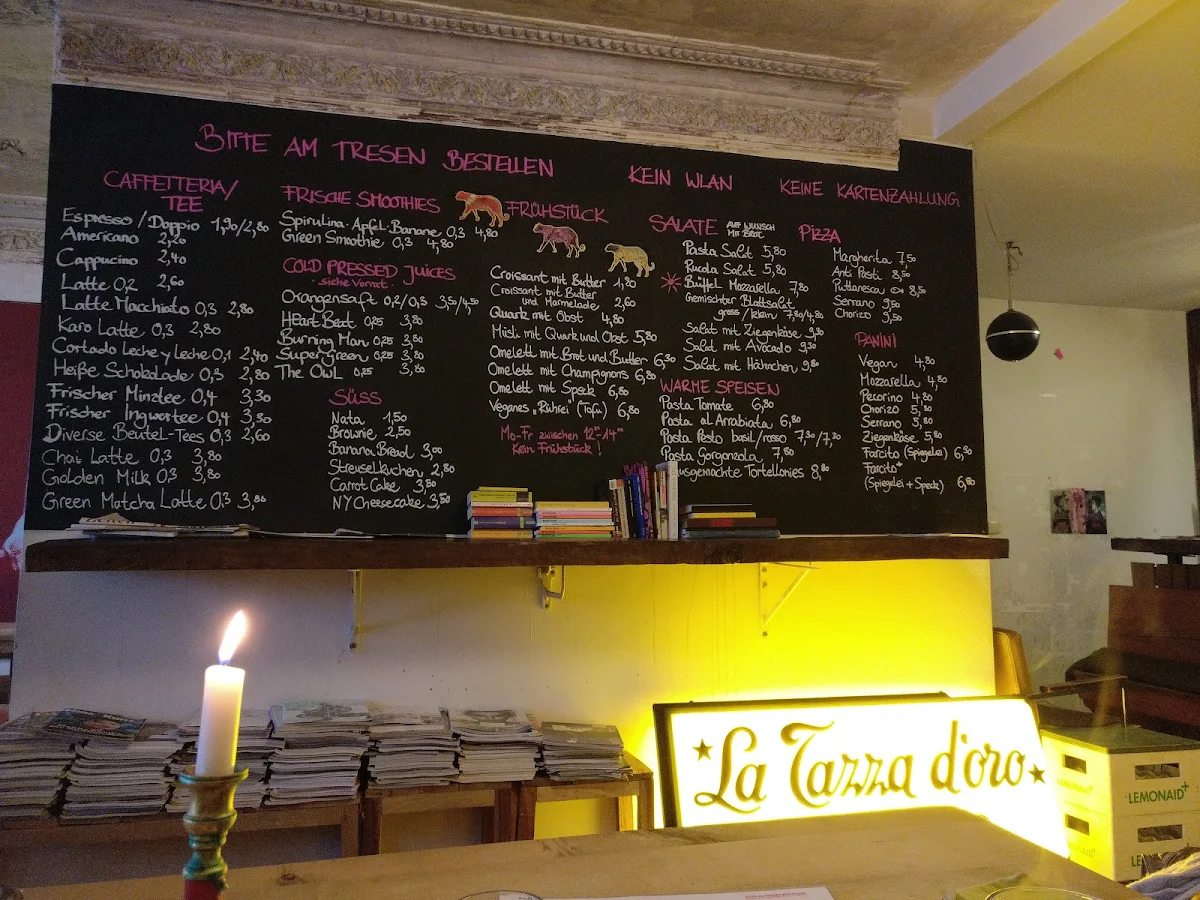 BITTE AM TRESEN BESTELLEN
KEIN WLAN
KEINE KARTENZAHLUNG
CAFFETTERIA/
TEE
Espresso/Doppio 1,90/2,80
Americano 2,20
Cappucino 2,40
Latte 0,2 2,60
Latte Macchiato 0,3 2,80
Karo Latte 0,3 2,80
Cortado Leche y Leche 0,1 2,40
Heiße Schokolade 0,3 2,80
Frischer Minztee 0,4 3,30
Frischer Ingwertee 0,4 3,30
Diverse Beutel-Tees 0,3 2,60
Chai Latte 0,3 3,80
Golden Milk 0,3 3,80
Green Matcha Latte 0,3 3,80
FRISCHE SMOOTHIES
Spirulina-Apfel-Banane 0,3 4,80
Green Smoothie 0,3 4,80
COLD PRESSED JUICES
- siehe Vorrat -
Orangensaft 0,2/0,3 3,50/4,50
HEart Beat 0,25 3,80
Burning Man 0,25 3,80
Supergreen 0,25 3,80
The Owl 0,25 3,80
SÜSS
Nata 1,50
Brownie 2,50
Banana Bread 3,00
Streuselkuchen 2,80
Carrot Cake 3,50
NY Cheesecake 3,50
FRÜHSTÜCK
Croissant mit Butter 1,80
Croissant mit Butter
und Marmelade 2,60
Quark mit Obst 4,80
Müsli mit Quark und Obst 5,80
Omelett mit Brot und Butter 6,30
Omelett mit Champignons 6,80
Omelett mit Speck 6,80
Veganes „Rührei" (Tofu) 6,80
Mo-Fr zwischen 12⁰⁰-14⁰⁰
kein Frühstück!
SALATE AUF WUNSCH
MIT BROT
Pasta Salat 5,80
Rucola Salat 5,80
Büffel Mozzarella 7,80
Gemischter Blattsalat
gross/klein 7,80/4,80
Salat mit Ziegenkäse 9,30
Salat mit Avocado 9,30
Salat mit Hähnchen 9,80
WARME SPEISEN
Pasta Tomate 6,80
Pasta al Arrabiata 6,80
Pasta Pesto basil/rosso 7,30/7,30
Pasta Gorgonzola 7,80
Hausgemachte Tortellonies 8,80
PIZZA
Margherita 7,50
Anti Pasti 8,50
Puttanesca 8,50
Serrano 9,50
Chorizo 9,50
PANINI
Vegan 4,80
Mozzarella 4,80
Pecorino 4,80
Chorizo 5,80
Serrano 5,80
Ziegenkäse 5,80
Farcito (Spiegelei) 6,30
Farcito+
(Spiegelei + Speck) 6,80
La Tazza d'oro
LEMONAID+
LE